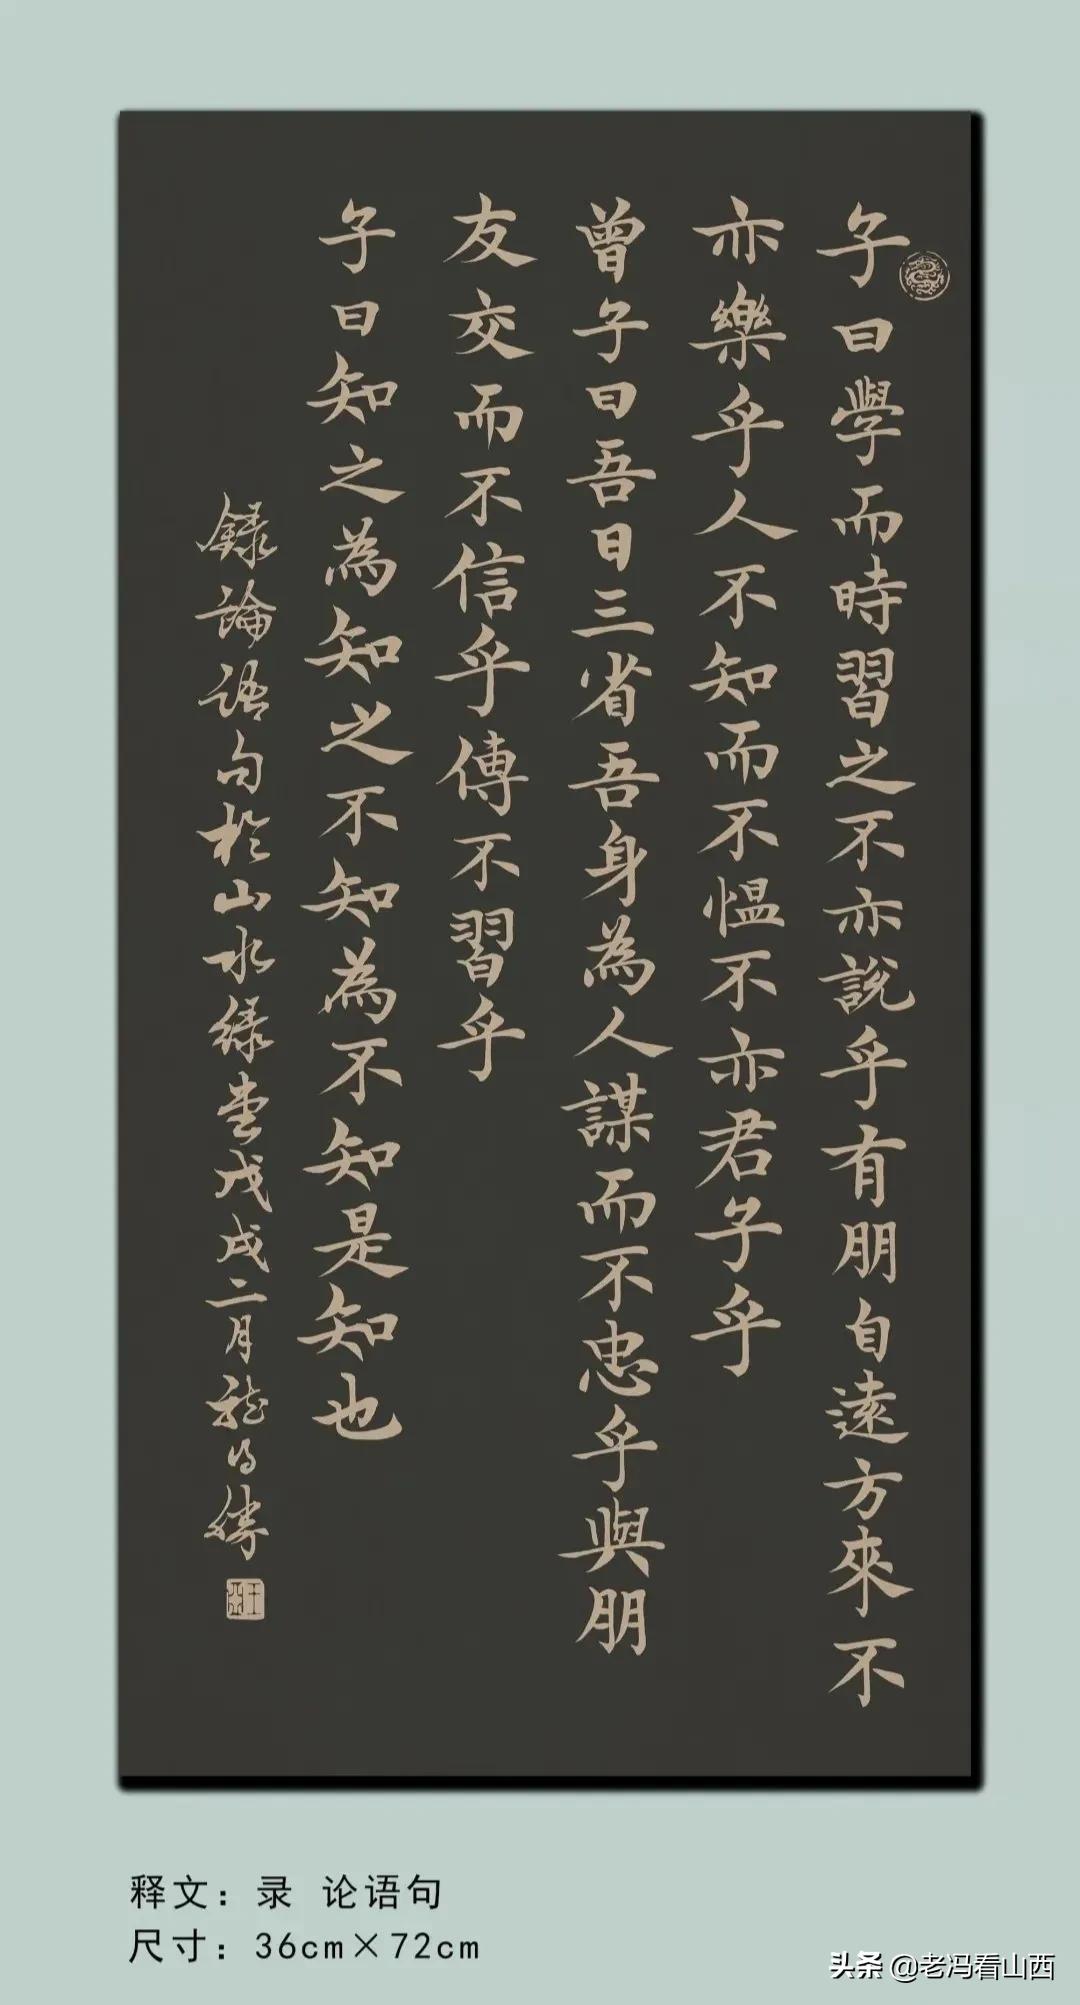 子曰學而時習之不亦說乎有朋自遠方來不
亦樂乎人不知而不愠不亦君子乎
曾子曰吾日三省吾身為人謀而不忠乎與朋
友交而不信乎傳不習乎
子曰知之為知之不知為不知是知也
録論語句於山水緑堂戊戌二月
释文：录 论语句
尺寸：36cm×72cm
头条 @老冯看山西